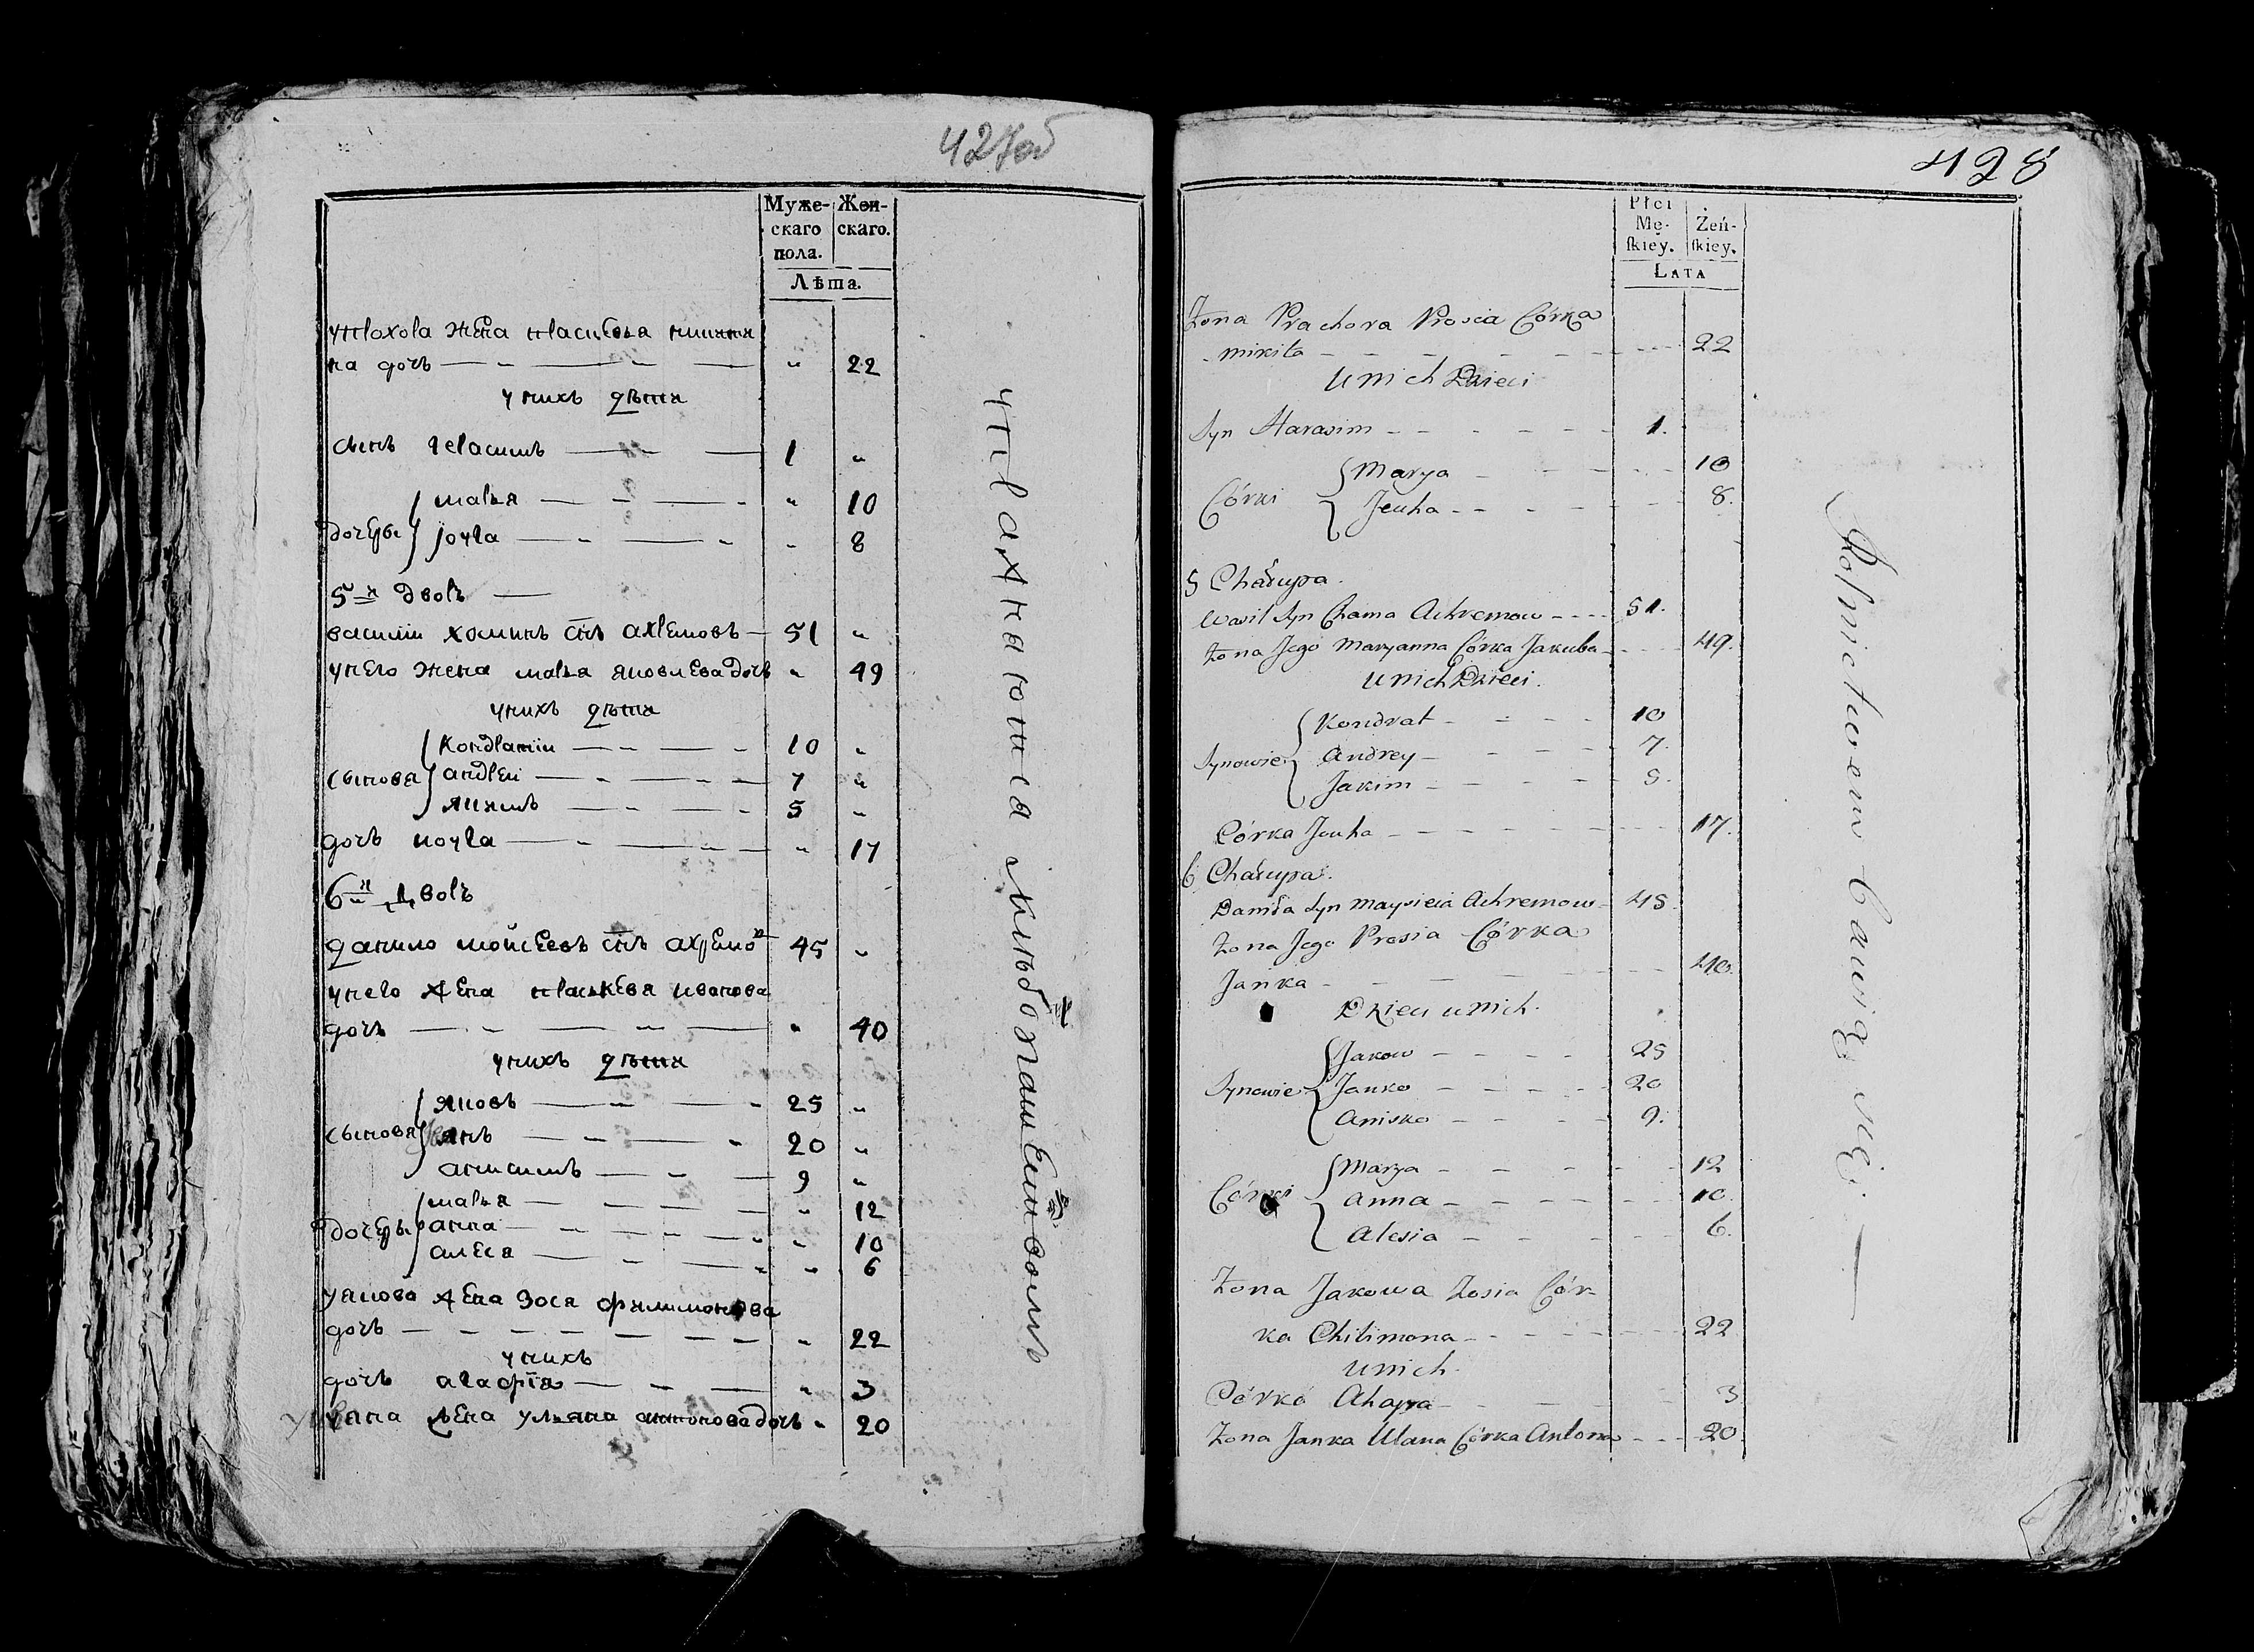 427об
Муже-
скаго
пола.
Жен-
скаго.
Лѣта.
упрохора жена праскевья никити
на дочь — " — " — " 22
у нихъ дѣти
сынъ герасимъ — 1 "
дочери
марья — " 10
југа — " 8
5й дворъ —
василий хоминъ снъ ахремовъ — 51 "
унего жена марья яковлева дочь " 49
унихъ дѣти
сыновя
кондратий — 10 "
андрей — 7 "
якимъ — 5 "
дочь — " 17
6й дворъ
данило мойсеевъ снъ ахремо в 45 "
унего жена праскевя иванова
дочь — " — " 40
унихъ дѣти
сыновя
яковъ — 25 "
янъ — 20 "
анисимъ — 9 "
дочери
марья — " 12
анна — " 10
алеся — " 6
уякова жена зося филимонова
дочь — " 22
унихъ
дочь агафїя — " 3
уяна жена ульяна антонова дочь " 20
упражняютца хлѣбопашеством
428
Płci
Mę-
ſkiey.
Żeń-
ſkiey.
LATA
Żona Prachora Prosia Córka
mikita — 22
U nich Dzieci
Syn Harasim — 1.
Córki
Marya — 10
Jeuha — 8.
5 Chałupa.
Wasil Syn Chama Achremow — 51.
Żona Jego Maryanna Córka Jakuba — 49.
U nich Dzieci.
Synowie
Kondrat — 10
Andrey — 7.
Jakim — 5.
Córka Jeuha — 17.
6 Chałupa.
Daniła Syn Maysieia Achremow — 45.
Żona Jego Prosia Córka
Janka — 40.
Dzieci u nich.
Synowie
Jakow — 25
Janko — 20
Anisko — 9.
Córki
Marya — 12
Anna — 10.
Alesia — 6.
Żona Jakowa Zosia Cór
ka Chilimona — 22
U nich.
Córka Ahapa — 3
Żona Janka Ulana Córka Antona — 20.
Rolnictwem bawią się. —